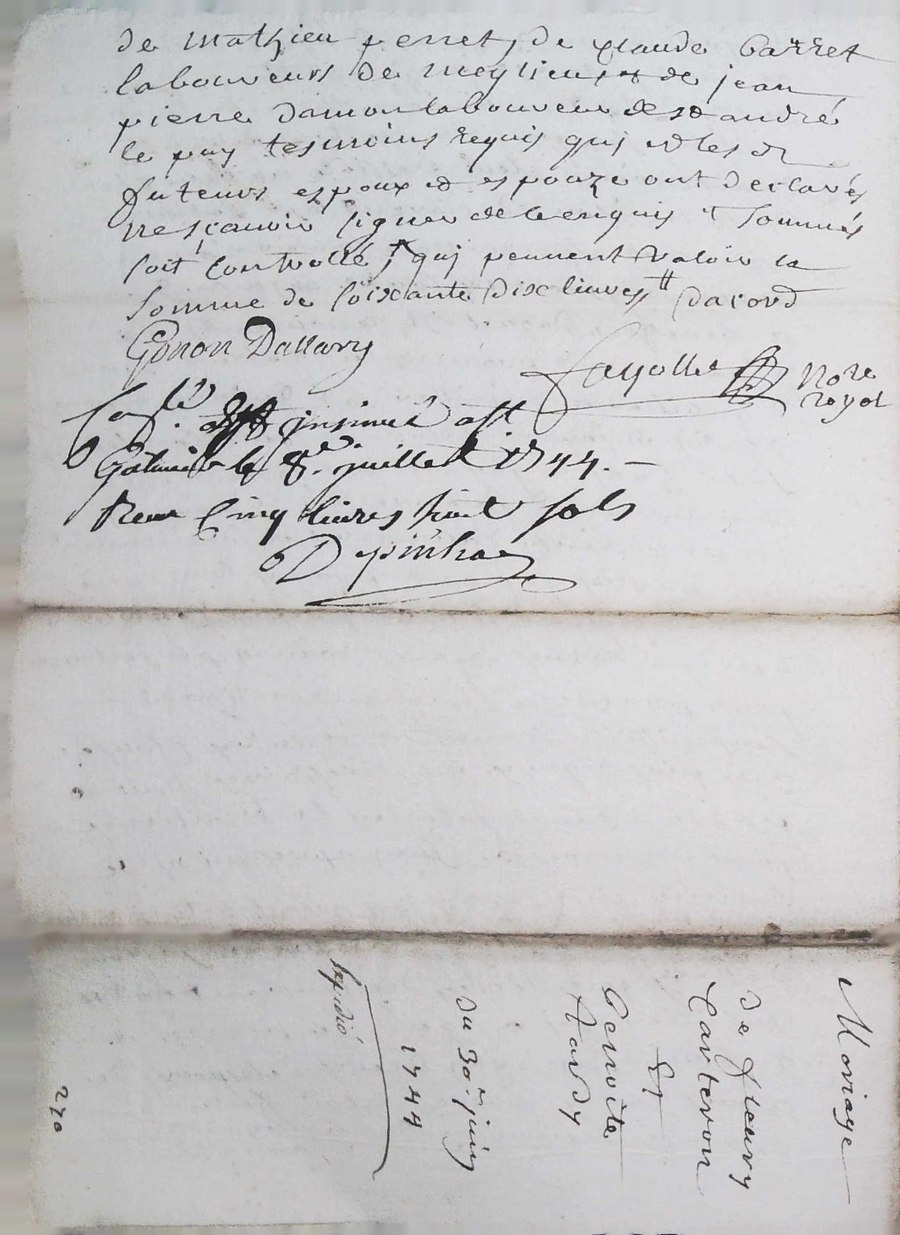 de mathieu perret, de claude barret
laboureurs de meylieu et de jean
pierre damon laboureur de st andré
le puy tesmoins requis qui et lesd
futeurs espoux et espouze ont declarés
ne sçavoir signer de ce enquis et sommés
soit controllé, qui peuvent valoir la
somme de soixante dix livres dacord
Gonon Dallary
Fayolle nore
royal
Conlé et insinué a st
Galmier le 8e. juillet 1744. –
Receu Cinq livres huit sols
Depinhac
Mariage
de fleury
Carteron
Et
Benoite
Hardy
du 30e juin
1744
Expedié
270